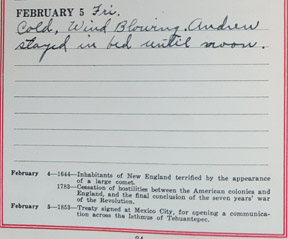 FEBRUARY 5 Fri.
Cold, Wind Blowing. Andrew
stayed in bed until noon.
February 4—1644—Inhabitants of New England terrified by the appearance
of a large comet.
1783—Cessation of hostilities between the American colonies and
England, and the final conclusion of the seven years' war
of the Revolution.
February 5—1853—Treaty signed at Mexico City, for opening a communica-
tion across the Isthmus of Tehuantepec.